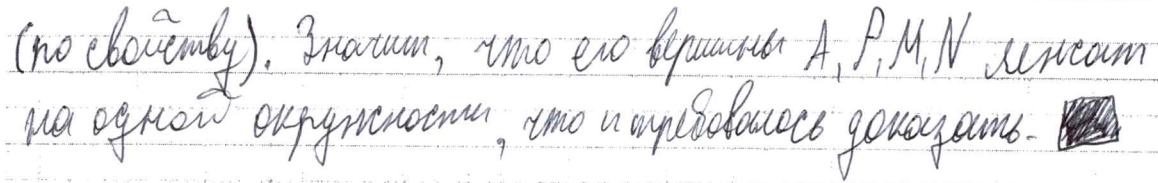 (по свойству). Значит, что его вершины A, P, M, N лежат
на одной окружности, что и требовалось доказать.